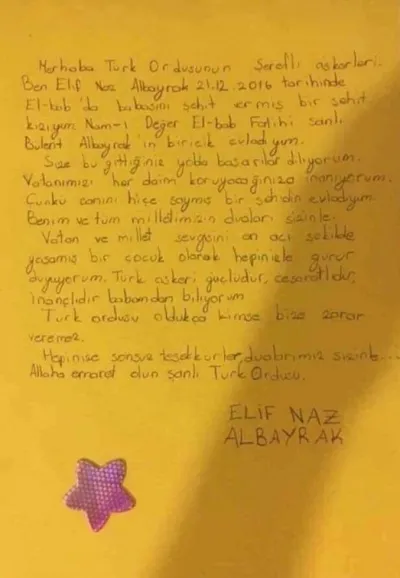 Merhaba Türk Ordusunun Şerefli askerleri.
Ben Elif Naz Albayrak 21.12.2016 tarihinde
El-bab'da babasını şehit vermiş bir şehit
kızıyım Nam-ı Değer El-bab Fatihi şanlı
Bülent Albayrak'ın biricik evladıyım.
Size bu gittiğiniz yolda başarılar diliyorum.
Vatanımızı her daim koruyacağınıza inanıyorum.
Çünkü canını hiçe saymış bir şehidin evladıyım.
Benim ve tüm milletimizin duaları sizinle.
Vatan ve millet sevgisini en acı şekilde
yaşamış bir çocuk olarak hepinizle gurur
duyuyorum. Türk askeri güçlüdür, cesaretlidir,
inançlıdır babamdan biliyorum
Türk ordusu oldukça kimse bize zarar
veremez.
Hepinize sonsuz teşekkürler, dualarımız sizinle...
Allaha emanet olun şanlı Türk Ordusu.
ELİF NAZ
ALBAYRAK